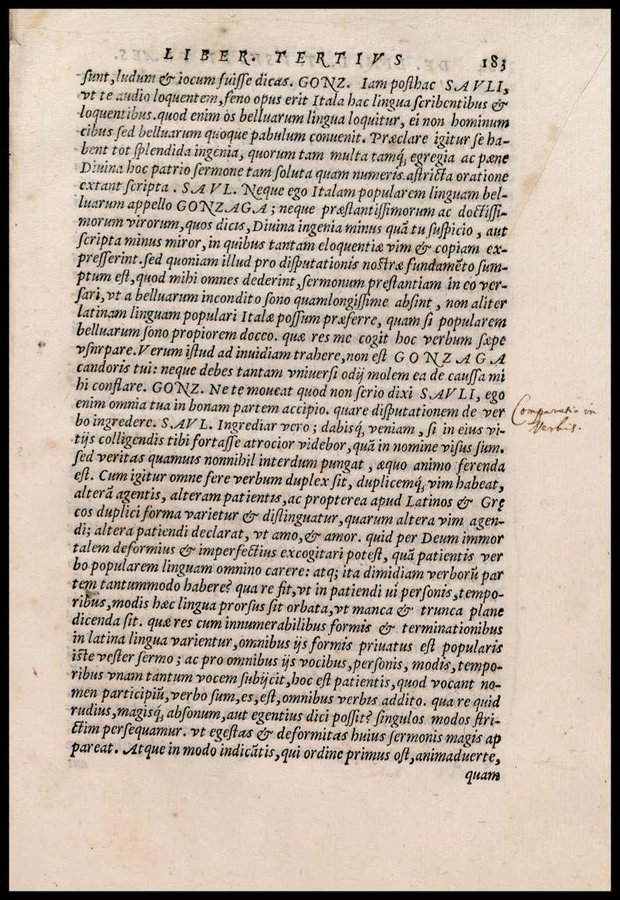 LIBER. TERTIVS 183
sunt, ludum & iocum fuisse dicas. GONZ. Iam posthac SAVLI,
vt te audio loquentem, feno opus erit Itala hac lingua scribentibus &
loquentibus. quod enim òs belluarum lingua loquitur, ei non hominum
cibus sed belluarum quoque pabulum conuenit. Præclare igitur se ha-
bent tot splendida ingenia, quorum tam multa tamq́, egregia ac pæne
Diuina hoc patrio sermone tam soluta quam numeris astricta oratione
extant scripta. SAVL. Neque ego Italam popularem linguam bel-
luarum appello GONZAGA; neque præstantissimorum ac doctissi-
morum virorum, quos dicis, Diuina ingenia minus quā tu suspicio, aut
scripta minus miror, in quibus tantam eloquentiæ vim & copiam ex-
presserint. sed quoniam illud pro disputationis nostræ fundamēto sum-
ptum est, quod mihi omnes dederint, sermonum prestantiam in eo ver-
sari, vt a belluarum incondito sono quamlongissime absint, non aliter
latinam linguam populari Italæ possum præferre, quam si popularem
belluarum sono propiorem docco. quæ res me cogit hoc verbum sæpe
vsnrpare. Verum istud ad inuidiam trahere, non est GONZAGA
candoris tui: neque debes tantam vniuersi odij molem ea de caussa mi
hi conflare. GONZ. Ne te moueat quod non serio dixi SAVLI, ego
enim omnia tua in bonam partem accipio. quare disputationem de ver
bo ingredere. SAVL. Ingrediar vero; dabisq́, veniam, si in eius vi-
tijs colligendis tibi fortasse atrocior videbor, quā in nomine visus sum.
Comparatio in
Verbis.
sed veritas quamuis nonnihil interdum pungat, æquo animo ferenda
est. Cum igitur omne fere verbum duplex sit, duplicemq́, vim habeat,
alterā agentis, alteram patientis, ac propterea apud Latinos & Grę
cos duplici forma varietur & distinguatur, quarum altera vim agen-
di; altera patiendi declarat, vt amo, & amor. quid per Deum immor
talem deformius & imperfectius excogitari potest, quā patientis ver
bo popularem linguam omnino carere: atq; ita dimidiam verborū par
tem tantummodo habere? qua re fit, vt in patiendi ui personis, tempo-
ribus, modis hæc lingua prorsus sit orbata, vt manca & trunca plane
dicenda sit. quæ res cum innumerabilibus formis & terminationibus
in latina lingua varientur, omnibus ijs formis priuatus est popularis
iste vester sermo; ac pro omnibus ijs vocibus, personis, modis, tempo-
ribus vnam tantum vocem subijcit, hoc est patientis, quod vocant no-
men participiū, verbo sum, es, est, omnibus verbis addito. qua re quid
rudius, magisq́, absonum, aut egentius dici possit? singulos modos stri-
ctim persequamur. vt egestas & deformitas huius sermonis magis ap
pareat. Atque in modo indicātis, qui ordine primus ost, animaduerte,
quam